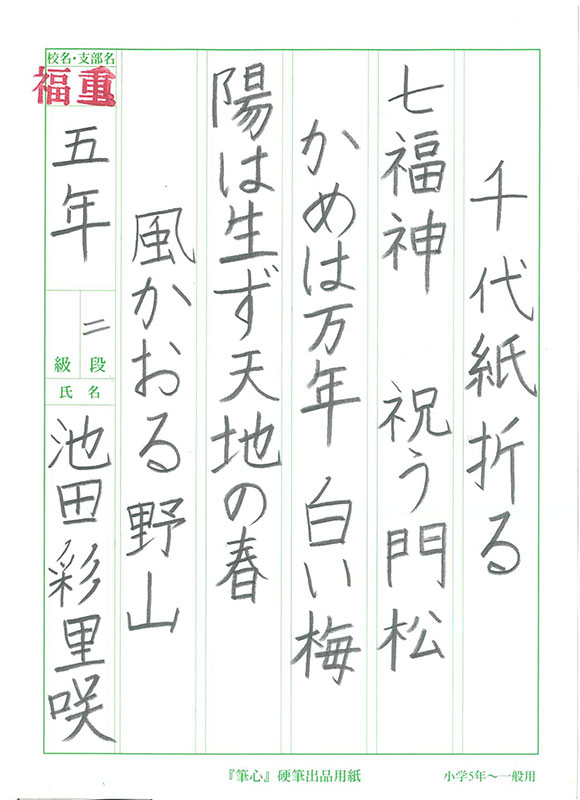 千代紙折る
七福神 祝う門松
かめは万年 白い梅
陽は生ず天地の春
風かおる野山
校名・支部名
福重
五年
二
段
級
氏名
池田彩里咲
『筆心』硬筆出品用紙
小学5年～一般用